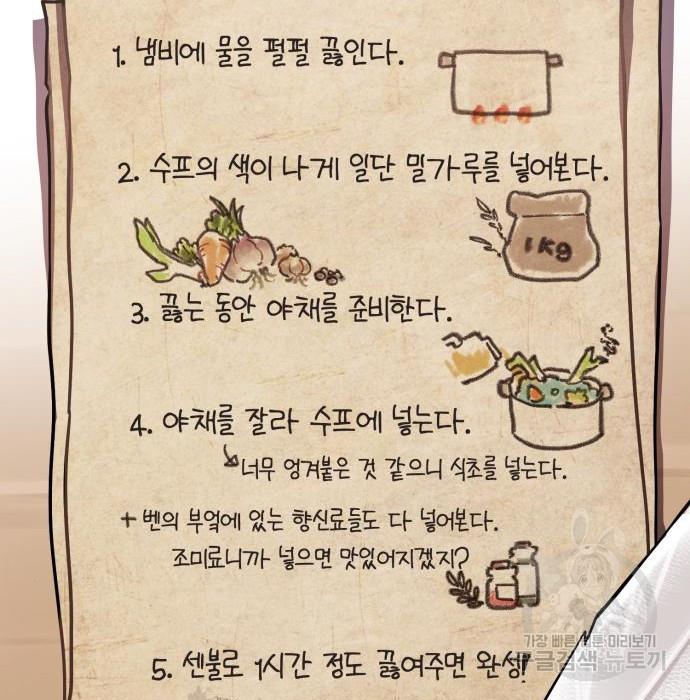 1. 냄비에 물을 펄펄 끓인다.
2. 수프의 색이 나게 일단 밀가루를 넣어본다.
1kg
3. 끓는 동안 야채를 준비한다.
4. 야채를 잘라 수프에 넣는다.
너무 엉겨붙은 것 같으니 식초를 넣는다.
+ 벤의 부엌에 있는 향신료들도 다 넣어본다.
조미료니까 넣으면 맛있어지겠지?
가장 빠른 웹툰 미리보기
구글검색 뉴토끼
5. 센불로 1시간 정도 끓여주면 완성!